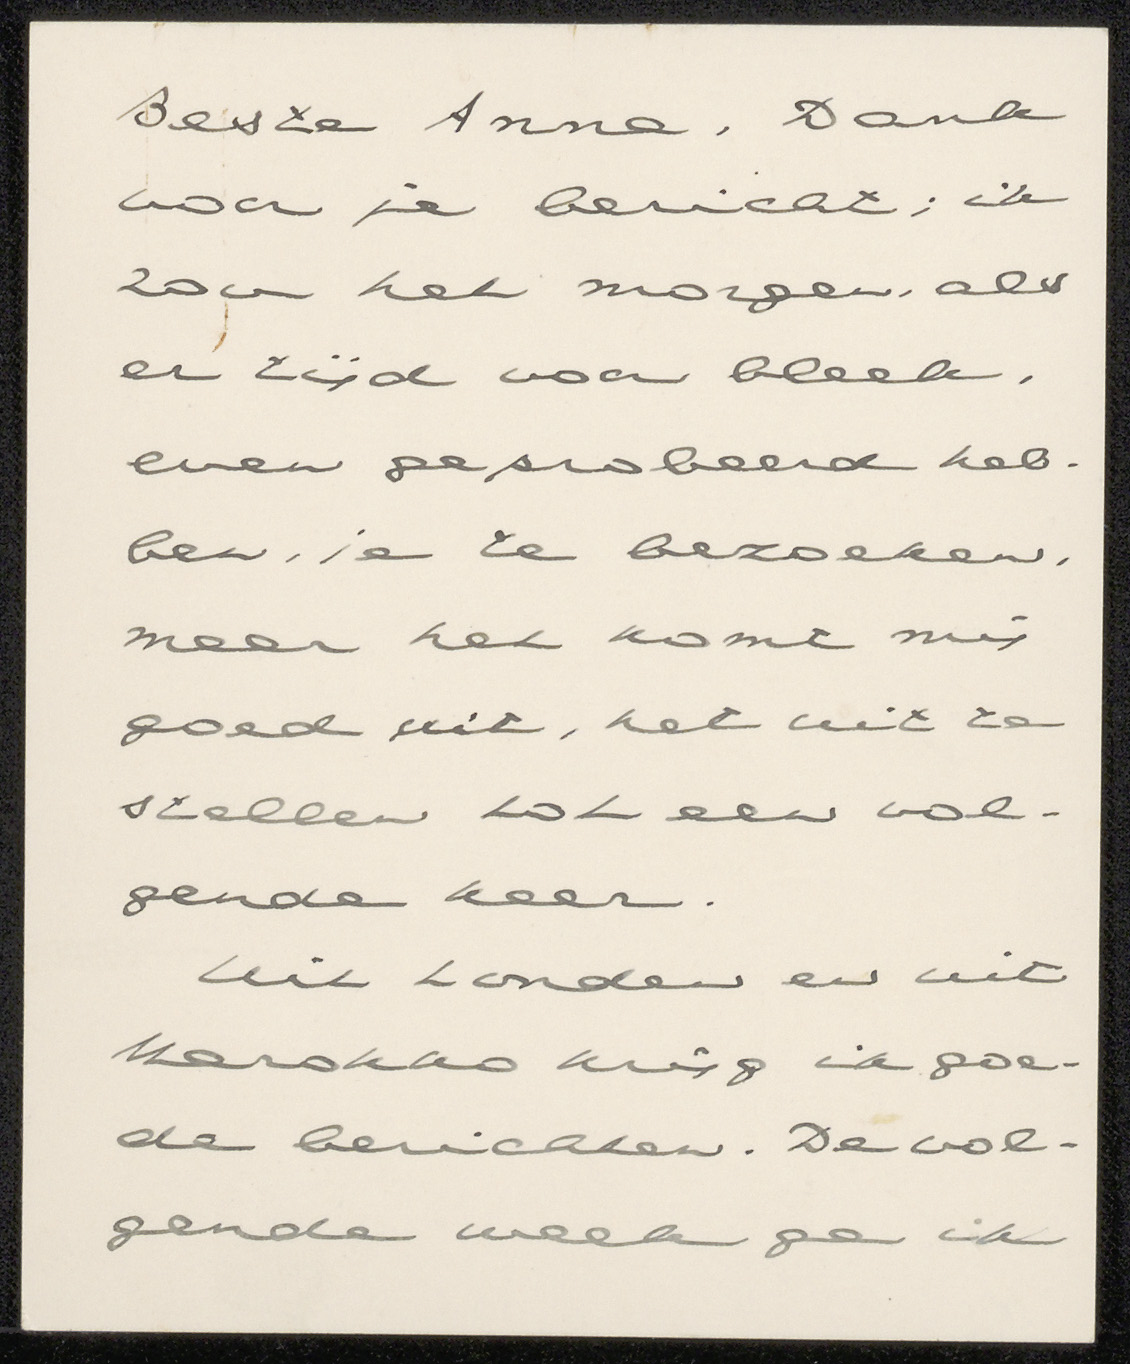 Beste Anna, Dank
voor je bericht; ik
zou het morgen, als
er tijd voor bleek,
even geprobeerd heb-
ben, je te bezoeken,
maar het komt mij
goed uit, het uit te
stellen tot een vol-
gende keer.
Uit Londen en uit
Marokko krijg ik goe-
de berichten. De vol-
gende week ga ik